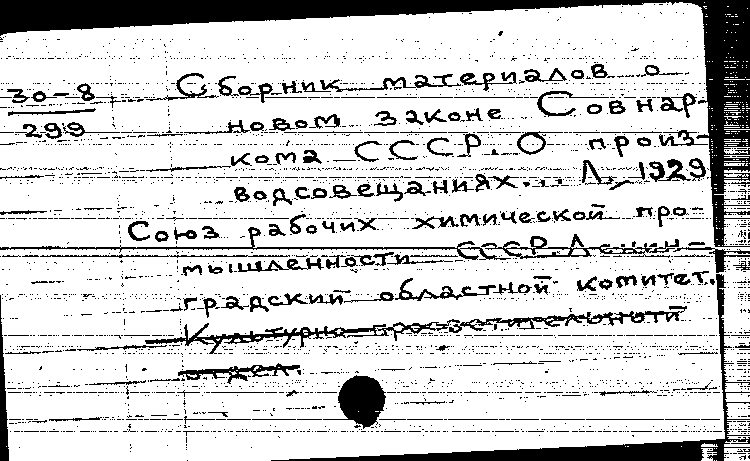 30-8
299
Сборник материалов о
новом законе Совнар-
кома СССР. О произ-
водсовещаниях... Л., 1929
Союз рабочих химической про-
мышленности СССР. Ленин-
градский областной комитет.
Культурно-просветительный
отдел.